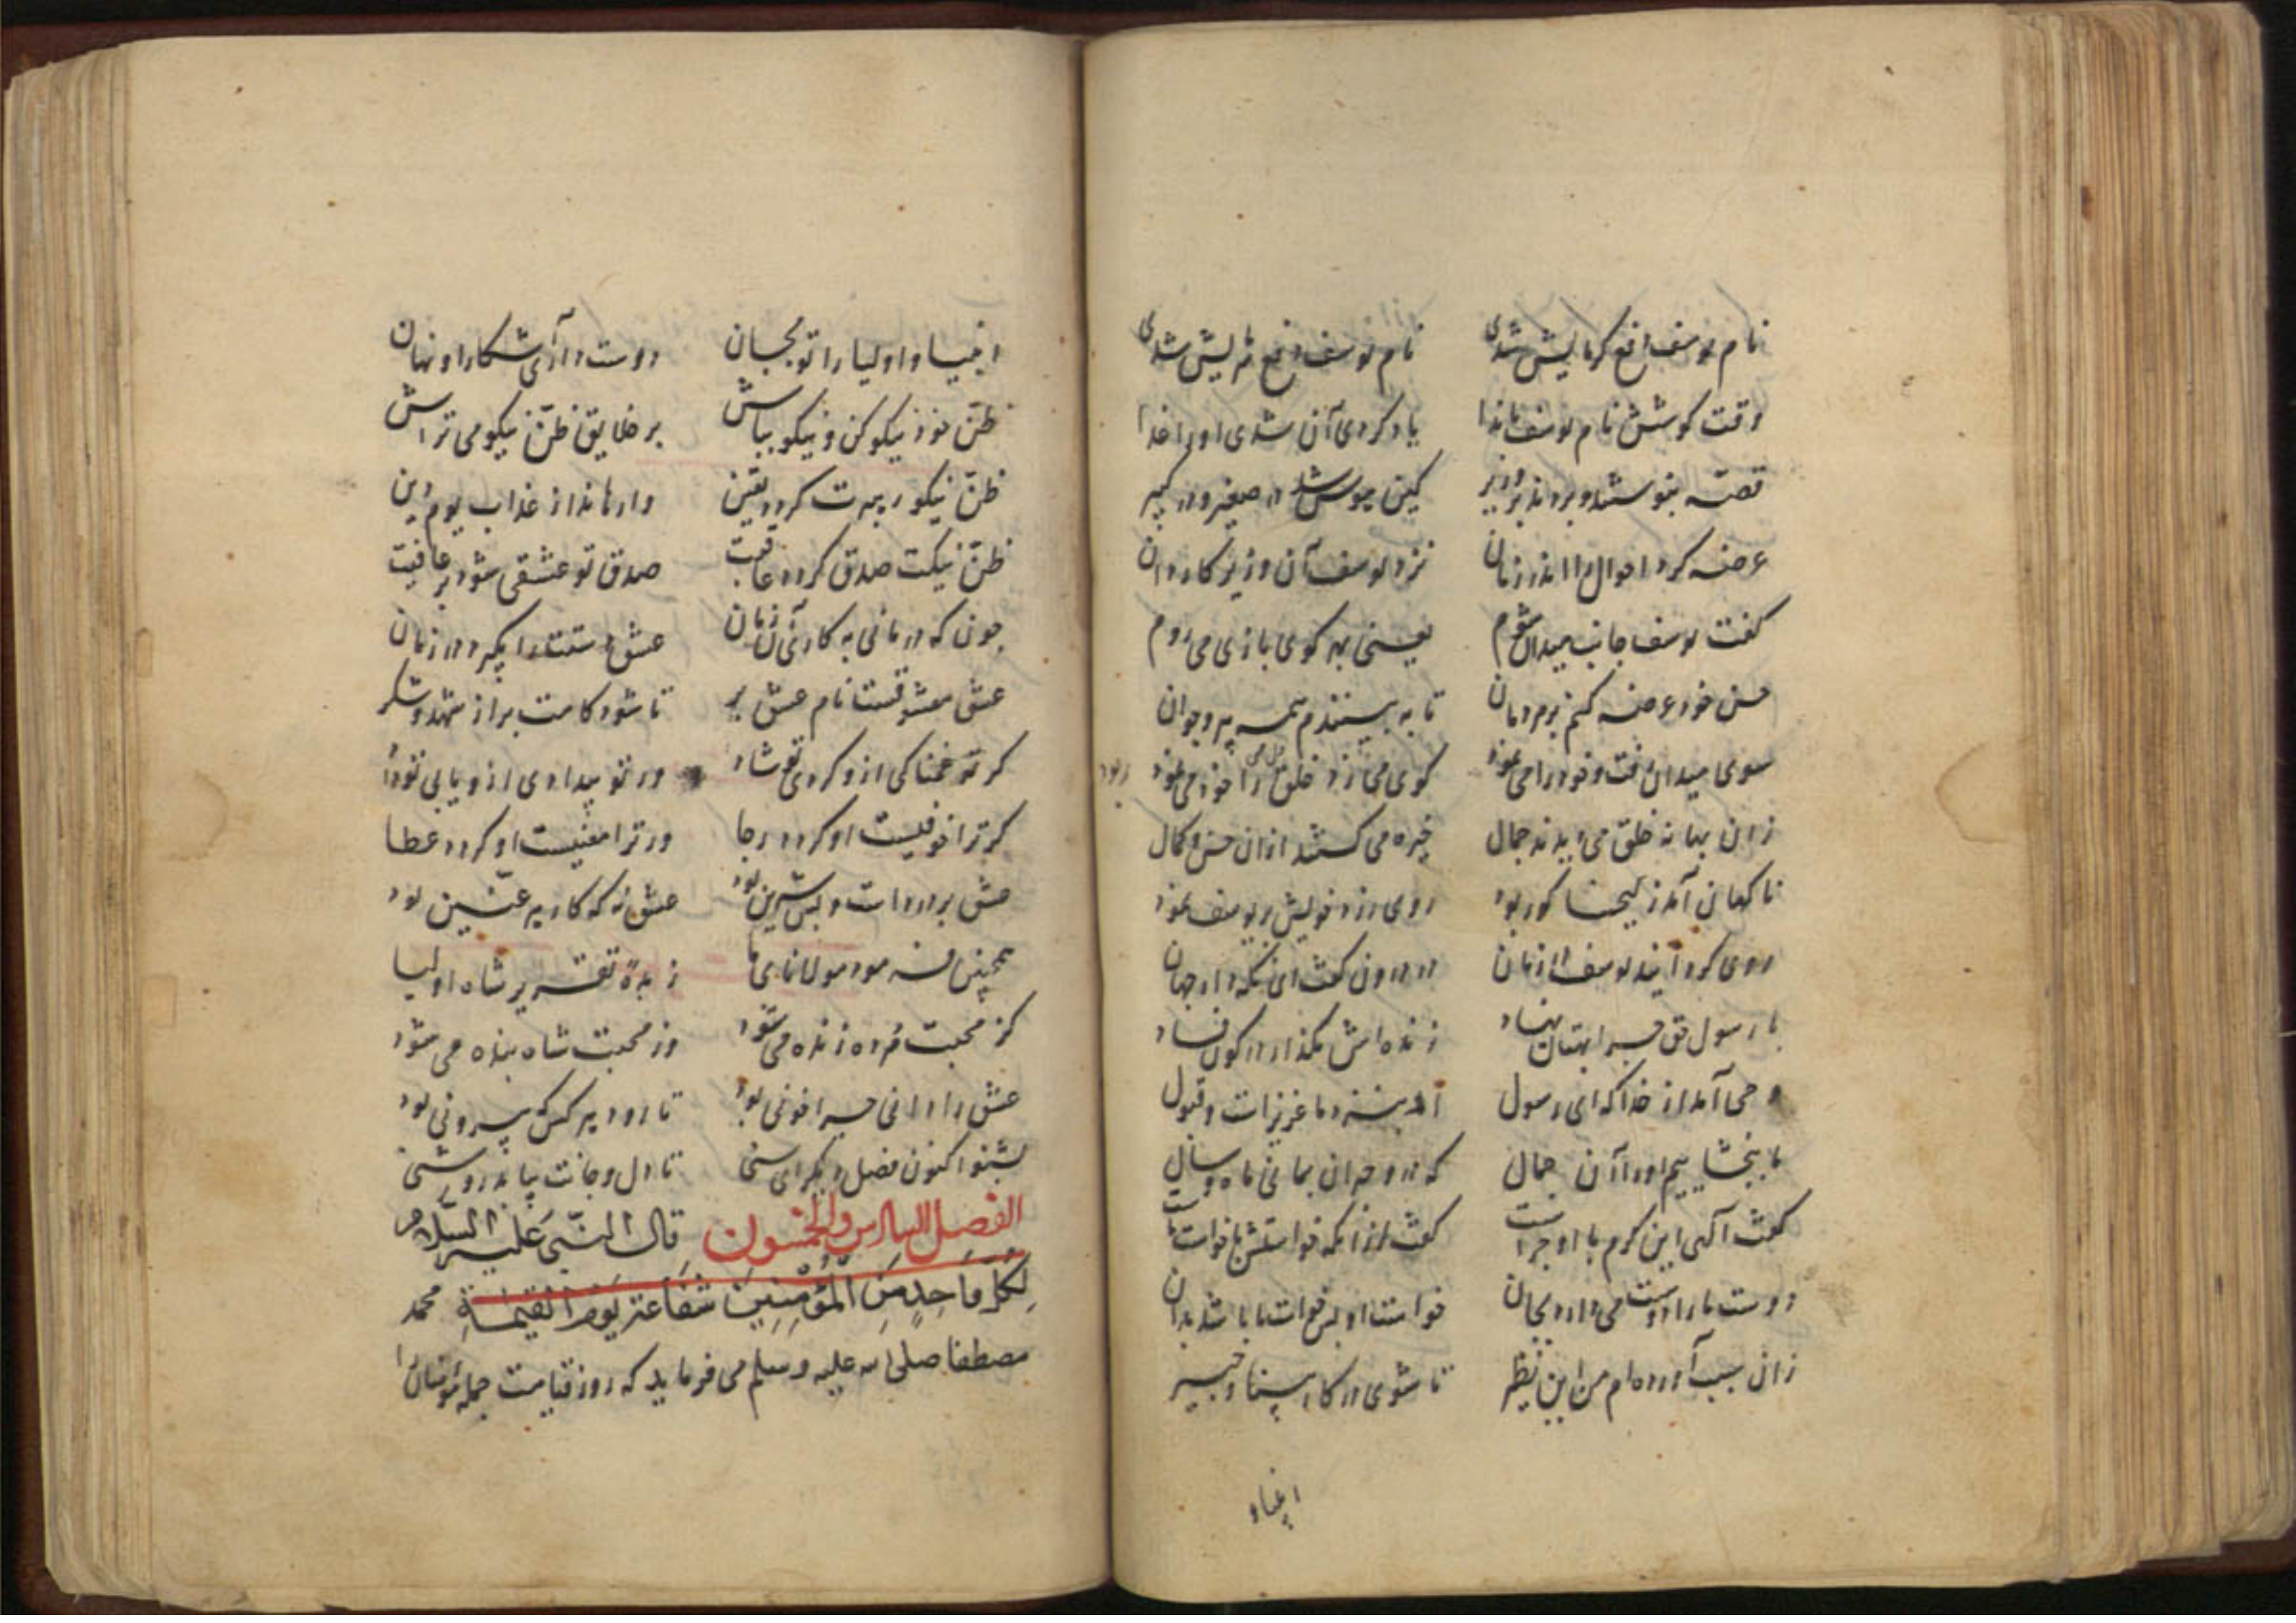 نام یوسف دافع گرمایش شدی نام یوسف دافع سرمایش شدی
وقت کوشش نام یوسف یاد کردی آن شدی او را غذا
قصه بنوشتند و بردند بر وزیر کین شد در صغیر و در کبیر
عرضه کرد احوال را اندر زمان نزد یوسف آن وزیر کاردان
گفت یوسف جانب میدان شوم یعنی بهر گوی بازی می روم
حسن خود عرضه کنم بر مردمان تا به بینندم همه پیر و جوان
سوی میدان رفت و خود را می نمود گوی می زد خلق را خود می نمود
زان بهانه خلق می دیدند جمال خیره می گشتند ازان حسن و کمال
ناگهانی آمد زلیخا کور بود روی زرد خویش بر یوسف نمود
روی گردانید یوسف در زمان در درون گفت ای نگه دار جهان
با رسول حق بهتان نهاد زنده اش مگذار در کون فساد
وحی آمد از خدا که ای رسول عزیزست و قبول
ما ببخشاییم او را آن جمال که درو حیران بمانی ماه و سال
گفت الهی این کرم با او چراست گفت ازانکه خواستش با خواست ماست
دوست ما را دوست می دارد بجان خواست او پس خواست ما باشد بدان
زان سبب آورده ام من این نظیر تا شوی در کار بینا و خبیر
انبیا و
انبیا و اولیا را تو بجان دوست دار آشکارا و نهان
ظن خود نیکو کن و نیکو بباش بر خلایق ظن نیکو می تراش
ظن نیکو رهبرت گردد یقین وارهاند از عذاب یوم دین
ظن نیکت صدق گردد عاقبت صدق تو عشقی شود بر عافیت
چون که درمانی به کاری آن زمان عشق دستت را بگیرد در زمان
عشق معشوقست نام عشق بر تا شود کامت پر از شهد و شکر
گر تو غمناکی ازو گردی تو شاد ور تو بیدادی ازو یابی تو داد
گر ترا خوفیست او گردد رجا ور ترا منعیست او گردد عطا
عشق پر دردست و بس شیرین بود عشق نه که کار هر عنین بود
همچنین فرمود مولانای ما زبدهٔ تقریر شاه اولیا
کز محبت مرده زنده می شود وز محبت شاه بنده می شود
عشق را دانی چرا خونی بود تا رود هر کس که بیرونی بود
بشنو اکنون فصل دیگر ای سنی تا دل و جانت بیابد روشنی
الفصل السادس والخمسون قال النبی علیه السلام
لِکُلِّ وَاحِدٍ مِنَ الْمُؤْمِنِینَ شَفَاعَة یَوْمَ الْقِیٰمَةِ محمد
مصطفا صلی الله علیه و سلم می فرماید که روز قیامت جمله مؤمنان را